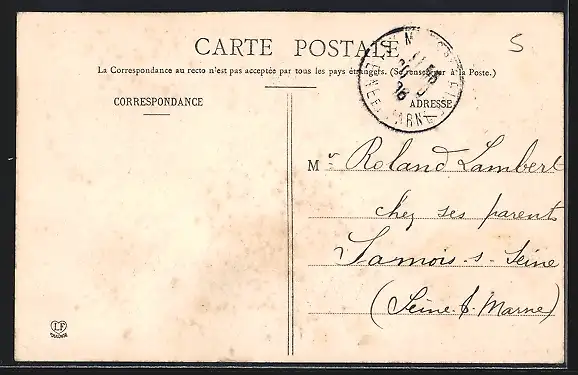 CARTE POSTALE
5
La Correspondance au recto n'est pas acceptée par tous les pays étrangers. (Se renseigner à la Poste.)
CORRESPONDANCE
ADRESSE
Mr Roland Lambert
chez ses parents
Samois-s-Seine
(Seine & Marne)